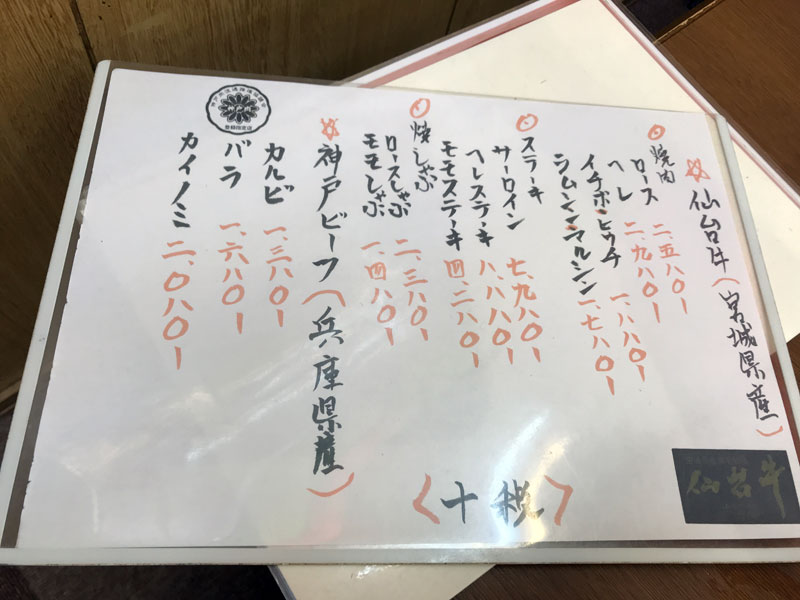 ☆仙台牛(宮城県産)
○焼肉
ロース 二、五八〇ー
ヘレ 二、九八〇ー
イチボ・ヒウチ 一、八八〇ー
シムシン・マルシン 一、七八〇ー
○ステーキ
サーロイン 七、九八〇ー
ヘレステーキ 八、八八〇ー
モモステーキ 四、二八〇ー
○焼しゃぶ
ロースしゃぶ 二、三八〇ー
モモしゃぶ 一、四八〇ー
☆神戸ビーフ(兵庫県産)
カルビ 一、三八〇ー
バラ 一、六八〇ー
カイノミ 二、〇八〇ー
〈十税〉
仙台牛
神戸肉流通推進協議会
登録指定店